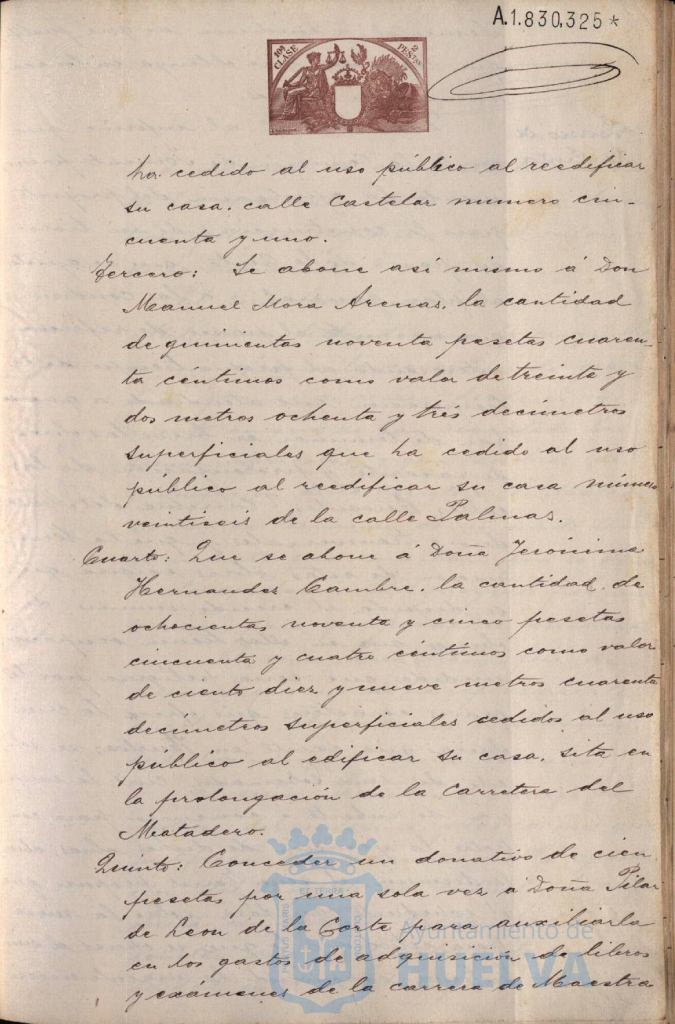 A.1.830,325*
10ª CLASE
2 PESTAS
ha cedido al uso público al reedificar
su casa, calle Castelar numero cin-
cuenta y uno.
Tercero: Se abone así mismo á Don
Manuel Mora Arenas, la cantidad
de quinientas noventa pesetas cuaren-
ta céntimos como valor de treinte y
dos metros ochenta y trés decímetros
superficiales que ha cedido al uso
público al reedificar su casa número
veintiseis de la calle Palmas.
Cuarto: Que se abone á Doña Jerónima
Hernandez Cambre, la cantidad de
ochocientas noventa y cinco pesetas
cincuenta y cuatro céntimos como valor
de ciento diez y nueve metros cuarenta
decímetros superficiales cedidos al uso
público al edificar su casa, sita en
la prolongación de la Carretera del
Matadero.
Quinto: Conceder un donativo de cien
pesetas por una sola vez á Doña Pilar
de Leon de la Corte para auxiliarla
en los gastos de adquisición de libros
y exámenes de la carrera de Maestra
Ayuntamiento de
HUELVA